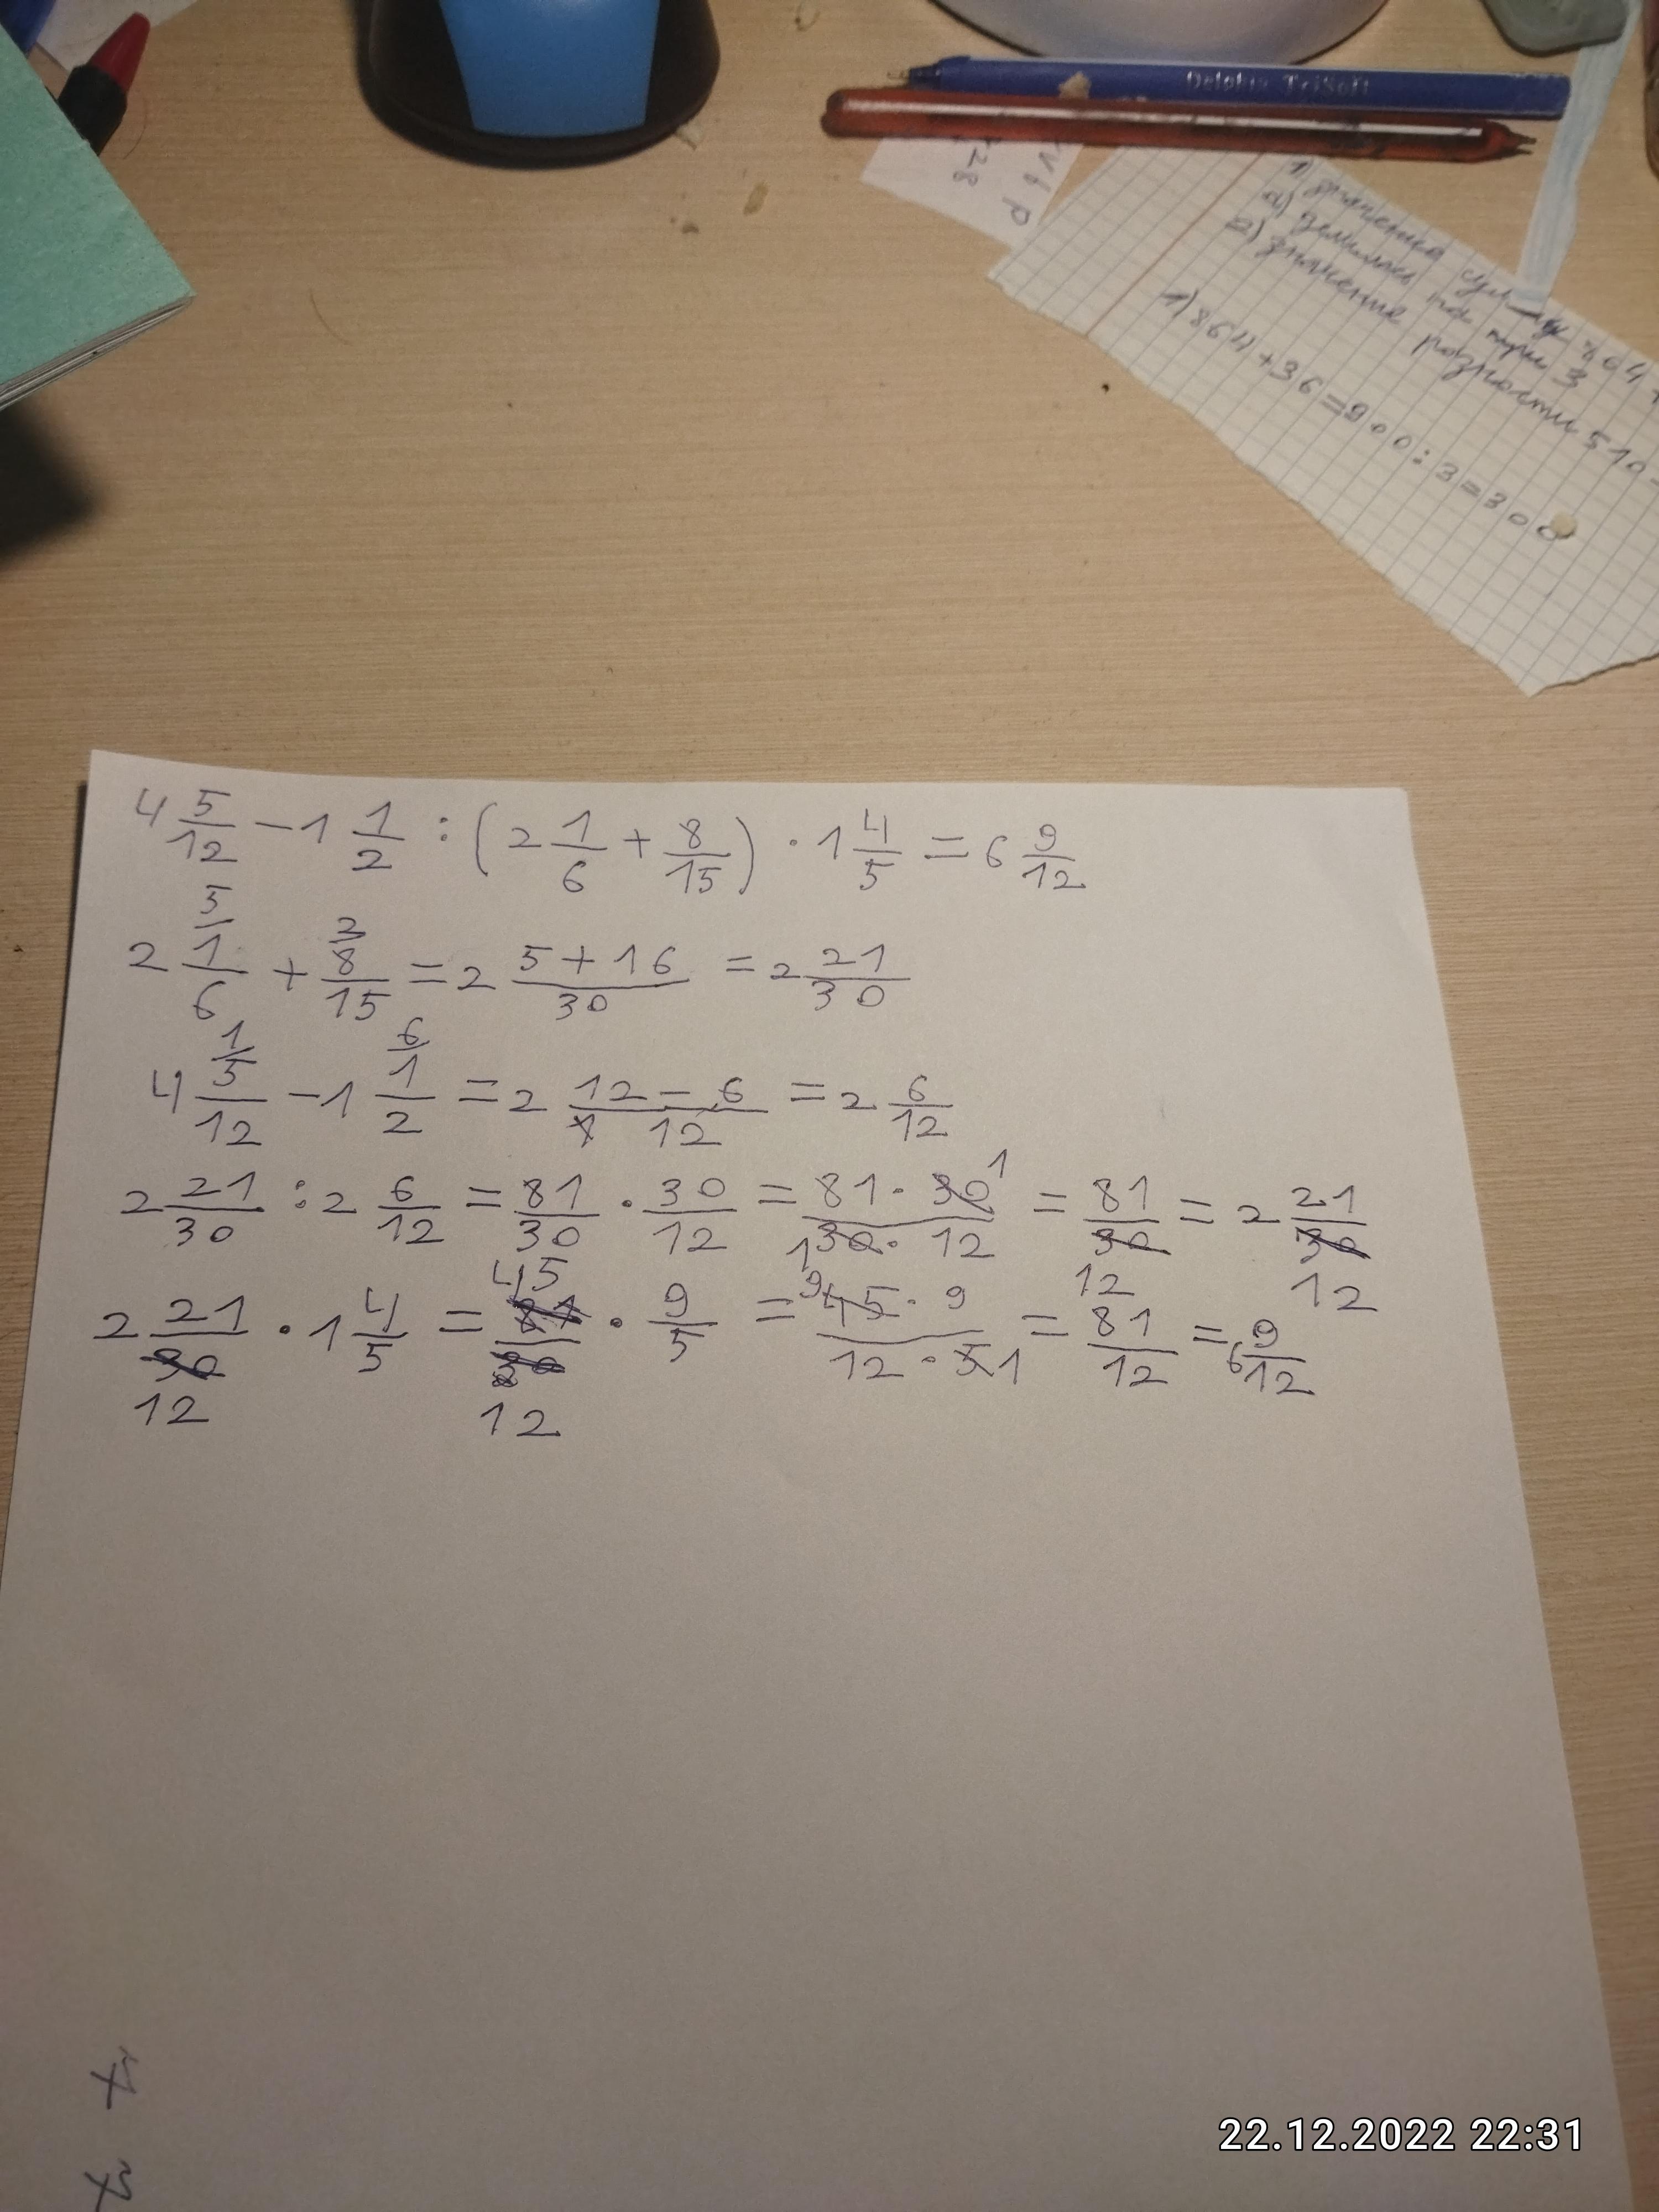 Delphis TriSoft
828
1) значение суммы 864+
а) делилось на три 3
2) значение разности 510-
1) 864 + 36 = 900 : 3 = 300
4 5/12 - 1 1/2 : (2 1/6 + 8/15) · 1 4/5 = 6 9/12
2 1/6 + 8/15 = 2 5+16/30 = 2 21/30
4 5/12 - 1 1/2 = 2 12-6/12 = 2 6/12
2 21/30 : 2 6/12 = 81/30 · 30/12 = 81·30/30·12 = 81/12 = 2 21/12
2 21/12 · 1 4/5 = 45/12 · 9/5 = 45·9/12·5 = 81/12 = 6 9/12
22.12.2022 22:31